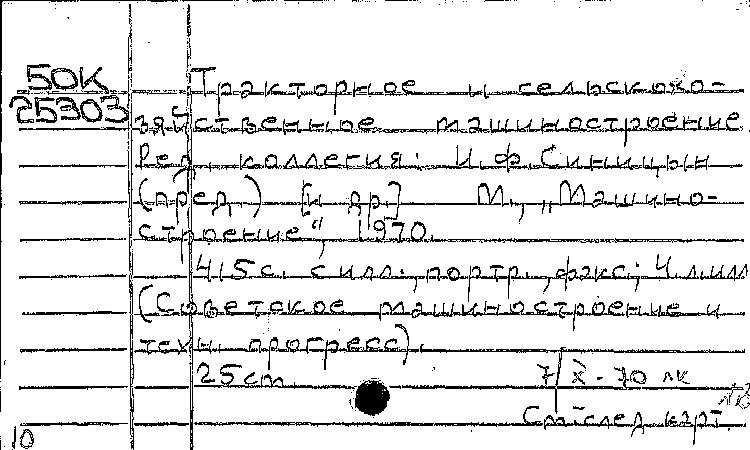 50К
25303
Тракторное и сельскохо-
зяйственное машиностроение.
Ред. коллегия: И.Ф.Синицын
(пред.) [и др.] М., „Машино-
строение“, 1970.
415 с. с илл., портр., факс; 4 л.илл
(Советское машиностроение и
техн. прогресс).
25 cm.
7/X - 70 лк
См. след. карт.
10